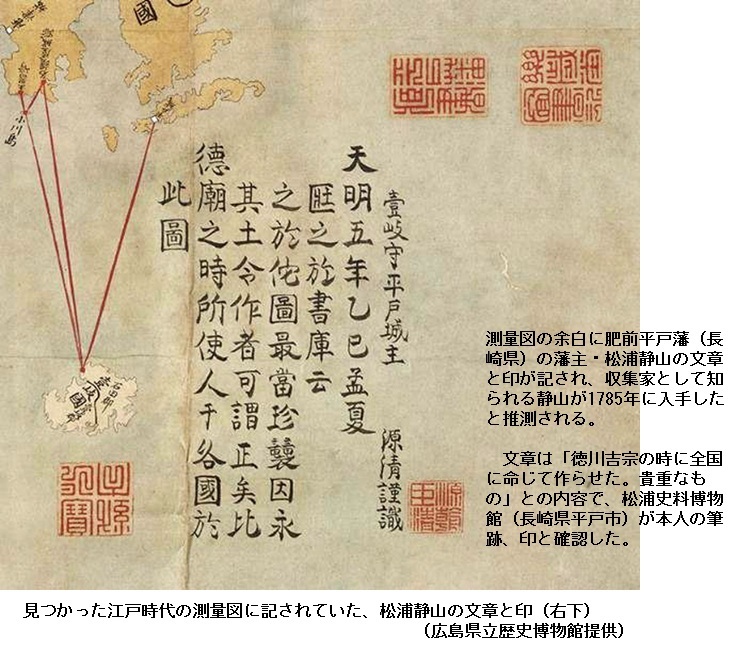 國
小川島
壹岐國
石田郡
此圖
德廟之時所使人于各國於
其土令作者可謂正矣比
之於佗圖最當珍襲因永
之於書庫云
天明五年乙巳孟夏
壹岐守平戸城主 源清謹識
測量図の余白に肥前平戸藩（長
崎県）の藩主・松浦静山の文章
と印が記され、収集家として知
られる静山が1785年に入手した
と推測される。
文章は「徳川吉宗の時に全国
に命じて作らせた。貴重なも
の」との内容で、松浦史料博物
館（長崎県平戸市）が本人の筆
跡、印と確認した。
見つかった江戸時代の測量図に記されていた、松浦静山の文章と印（右下）
（広島県立歴史博物館提供）